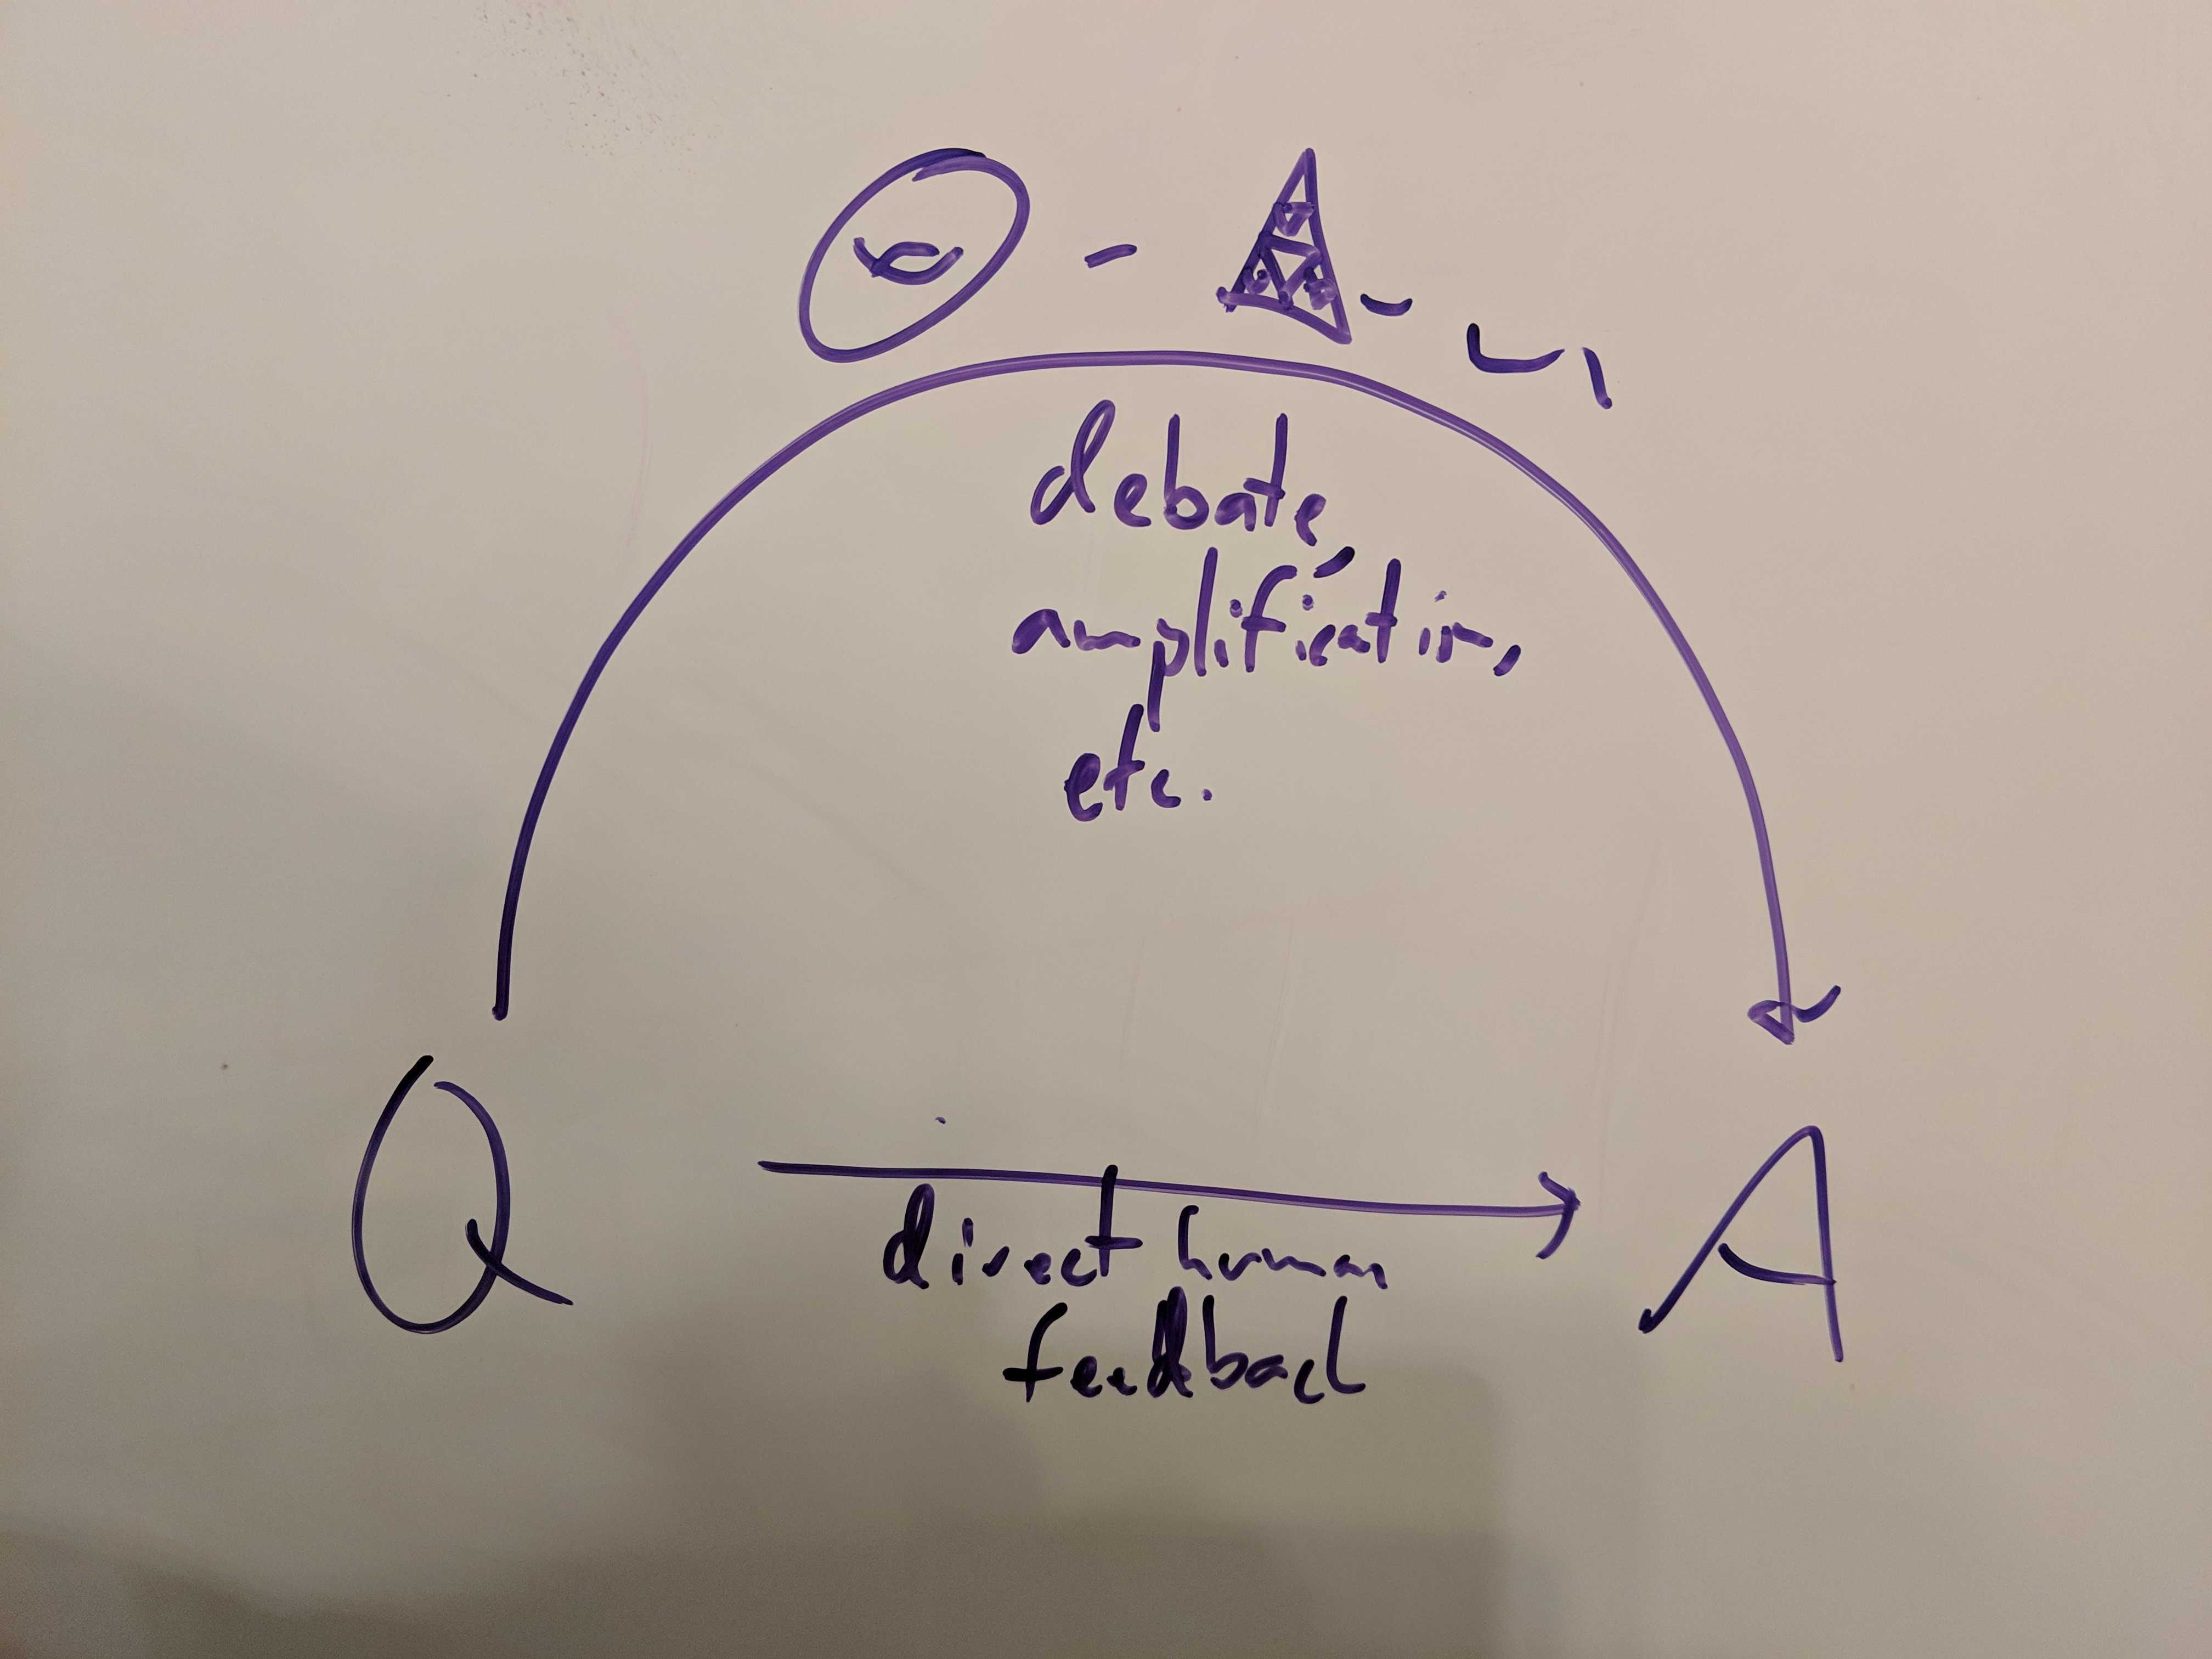 debate,
amplification,
etc.
Q
A
direct human
feedback